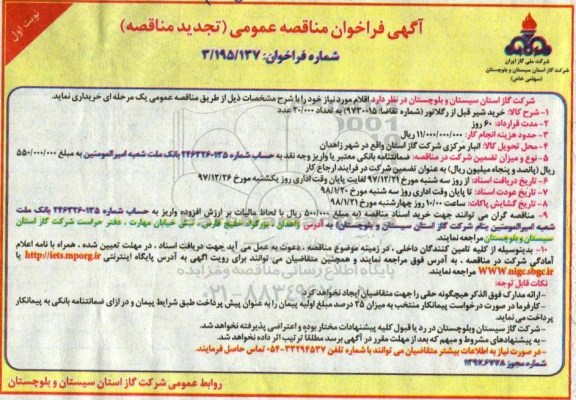 نوبت اول
آگهی فراخوان مناقصه عمومی (تجدید مناقصه)
شماره فراخوان: ۳/۱۹۵/۱۳۷
شرکت ملی گاز ایران
شرکت گاز استان سیستان و بلوچستان
(سهامی خاص)
شرکت گاز استان سیستان و بلوچستان در نظر دارد اقلام مورد نیاز خود را با شرح مشخصات ذیل از طریق مناقصه عمومی یک مرحله ای خریداری نماید.
۱- شرح کالا: خرید شیر قبل از رگلاتور (شماره تقاضا: ۹۷۳۰۰۱۵) به تعداد ۲۰/۰۰۰ عدد
۲- مدت قرارداد: ۶۰ روز
۳- حدود هزینه انجام کار: ۱۱/۰۰۰/۰۰۰/۰۰۰ ریال
۴- محل تحویل کالا: انبار مرکزی شرکت گاز استان واقع در شهر زاهدان
۵- نوع و میزان تضمین شرکت در مناقصه: ضمانتنامه بانکی معتبر یا واریز وجه نقد به حساب شماره ۲۴۶۳۲۶۰۱۳۵ بانک ملت شعبه امیرالمومنین به مبلغ ۵۵۰/۰۰۰/۰۰۰
ریال (پانصد و پنجاه میلیون ریال) به عنوان تضمین شرکت در فرایند ارجاع کار
۶- تاریخ دریافت اسناد: از روز سه شنبه مورخ ۹۷/۱۲/۲۱ لغایت پایان وقت اداری روز یکشنبه مورخ ۹۷/۱۲/۲۶
۷- تاریخ عودت اسناد: تا پایان وقت اداری روز سه شنبه مورخ ۹۸/۱/۲۰
۸- تاریخ گشایش پاکات: ساعت ۱۰/۰۰ روز چهارشنبه مورخ ۹۸/۱/۲۱
۹- مناقصه گران می توانند جهت خرید اسناد مناقصه (به مبلغ ۵۰۰/۰۰۰ ریال با لحاظ مالیات بر ارزش افزوده واریز به حساب شماره ۲۴۶۳۲۶۰۱۳۵ بانک ملت
شعبه امیرالمومنین بنام شرکت گاز استان سیستان و بلوچستان) به آدرس زاهدان، بزرگراه خلیج فارس، نبش خیابان مهارت، دفتر حراست شرکت گاز استان
سیستان و بلوچستان مراجعه نمایند.
۱۰- بدینوسیله از کلیه تامین کنندگان داخلی، در زمینه موضوع مناقصه، دعوت به عمل می آید جهت دریافت اسناد، در مهلت تعیین شده، همراه با نامه اعلام
آمادگی شرکت در مناقصه، به آدرس فوق مراجعه نمایند و همچنین متقاضیان می توانند برای رویت اگهی به آدرس پایگاه اینترنتی http://iets.mporg.ir یا
WWW.nigc.sbgc.ir مراجعه نمایند.
نکات قابل توجه:
- ارائه مدارک فوق الذکر هیچگونه حقی را جهت متقاضیان ایجاد نخواهد کرد.
- کارفرما در صورت درخواست پیمانکار منتخب به میزان ۲۵ درصد مبلغ اولیه پیمان را به عنوان پیش پرداخت طبق شرایط پیمان و در ازای ضمانتنامه بانکی به پیمانکار
پرداخت می نماید.
- شرکت گاز سیستان وبلوچستان در رد یا قبول کلیه پیشنهادات مختار بوده و اعتراضی پذیرفته نخواهد شد.
- به پیشنهادهای مشروط و مبهم که بعد از مهلت مقرر در آگهی برسد مطلقا ترتیب اثر داده نخواهد شد.
- در صورت نیاز به اطلاعات بیشتر متقاضیان می توانند با شماره تلفن ۳۳۲۹۴۵۳۷-۰۵۴ تماس حاصل فرمایند.
شماره مجوز ۱۳۹۷.۶۷۷۸
روابط عمومی شرکت گاز استان سیستان و بلوچستان